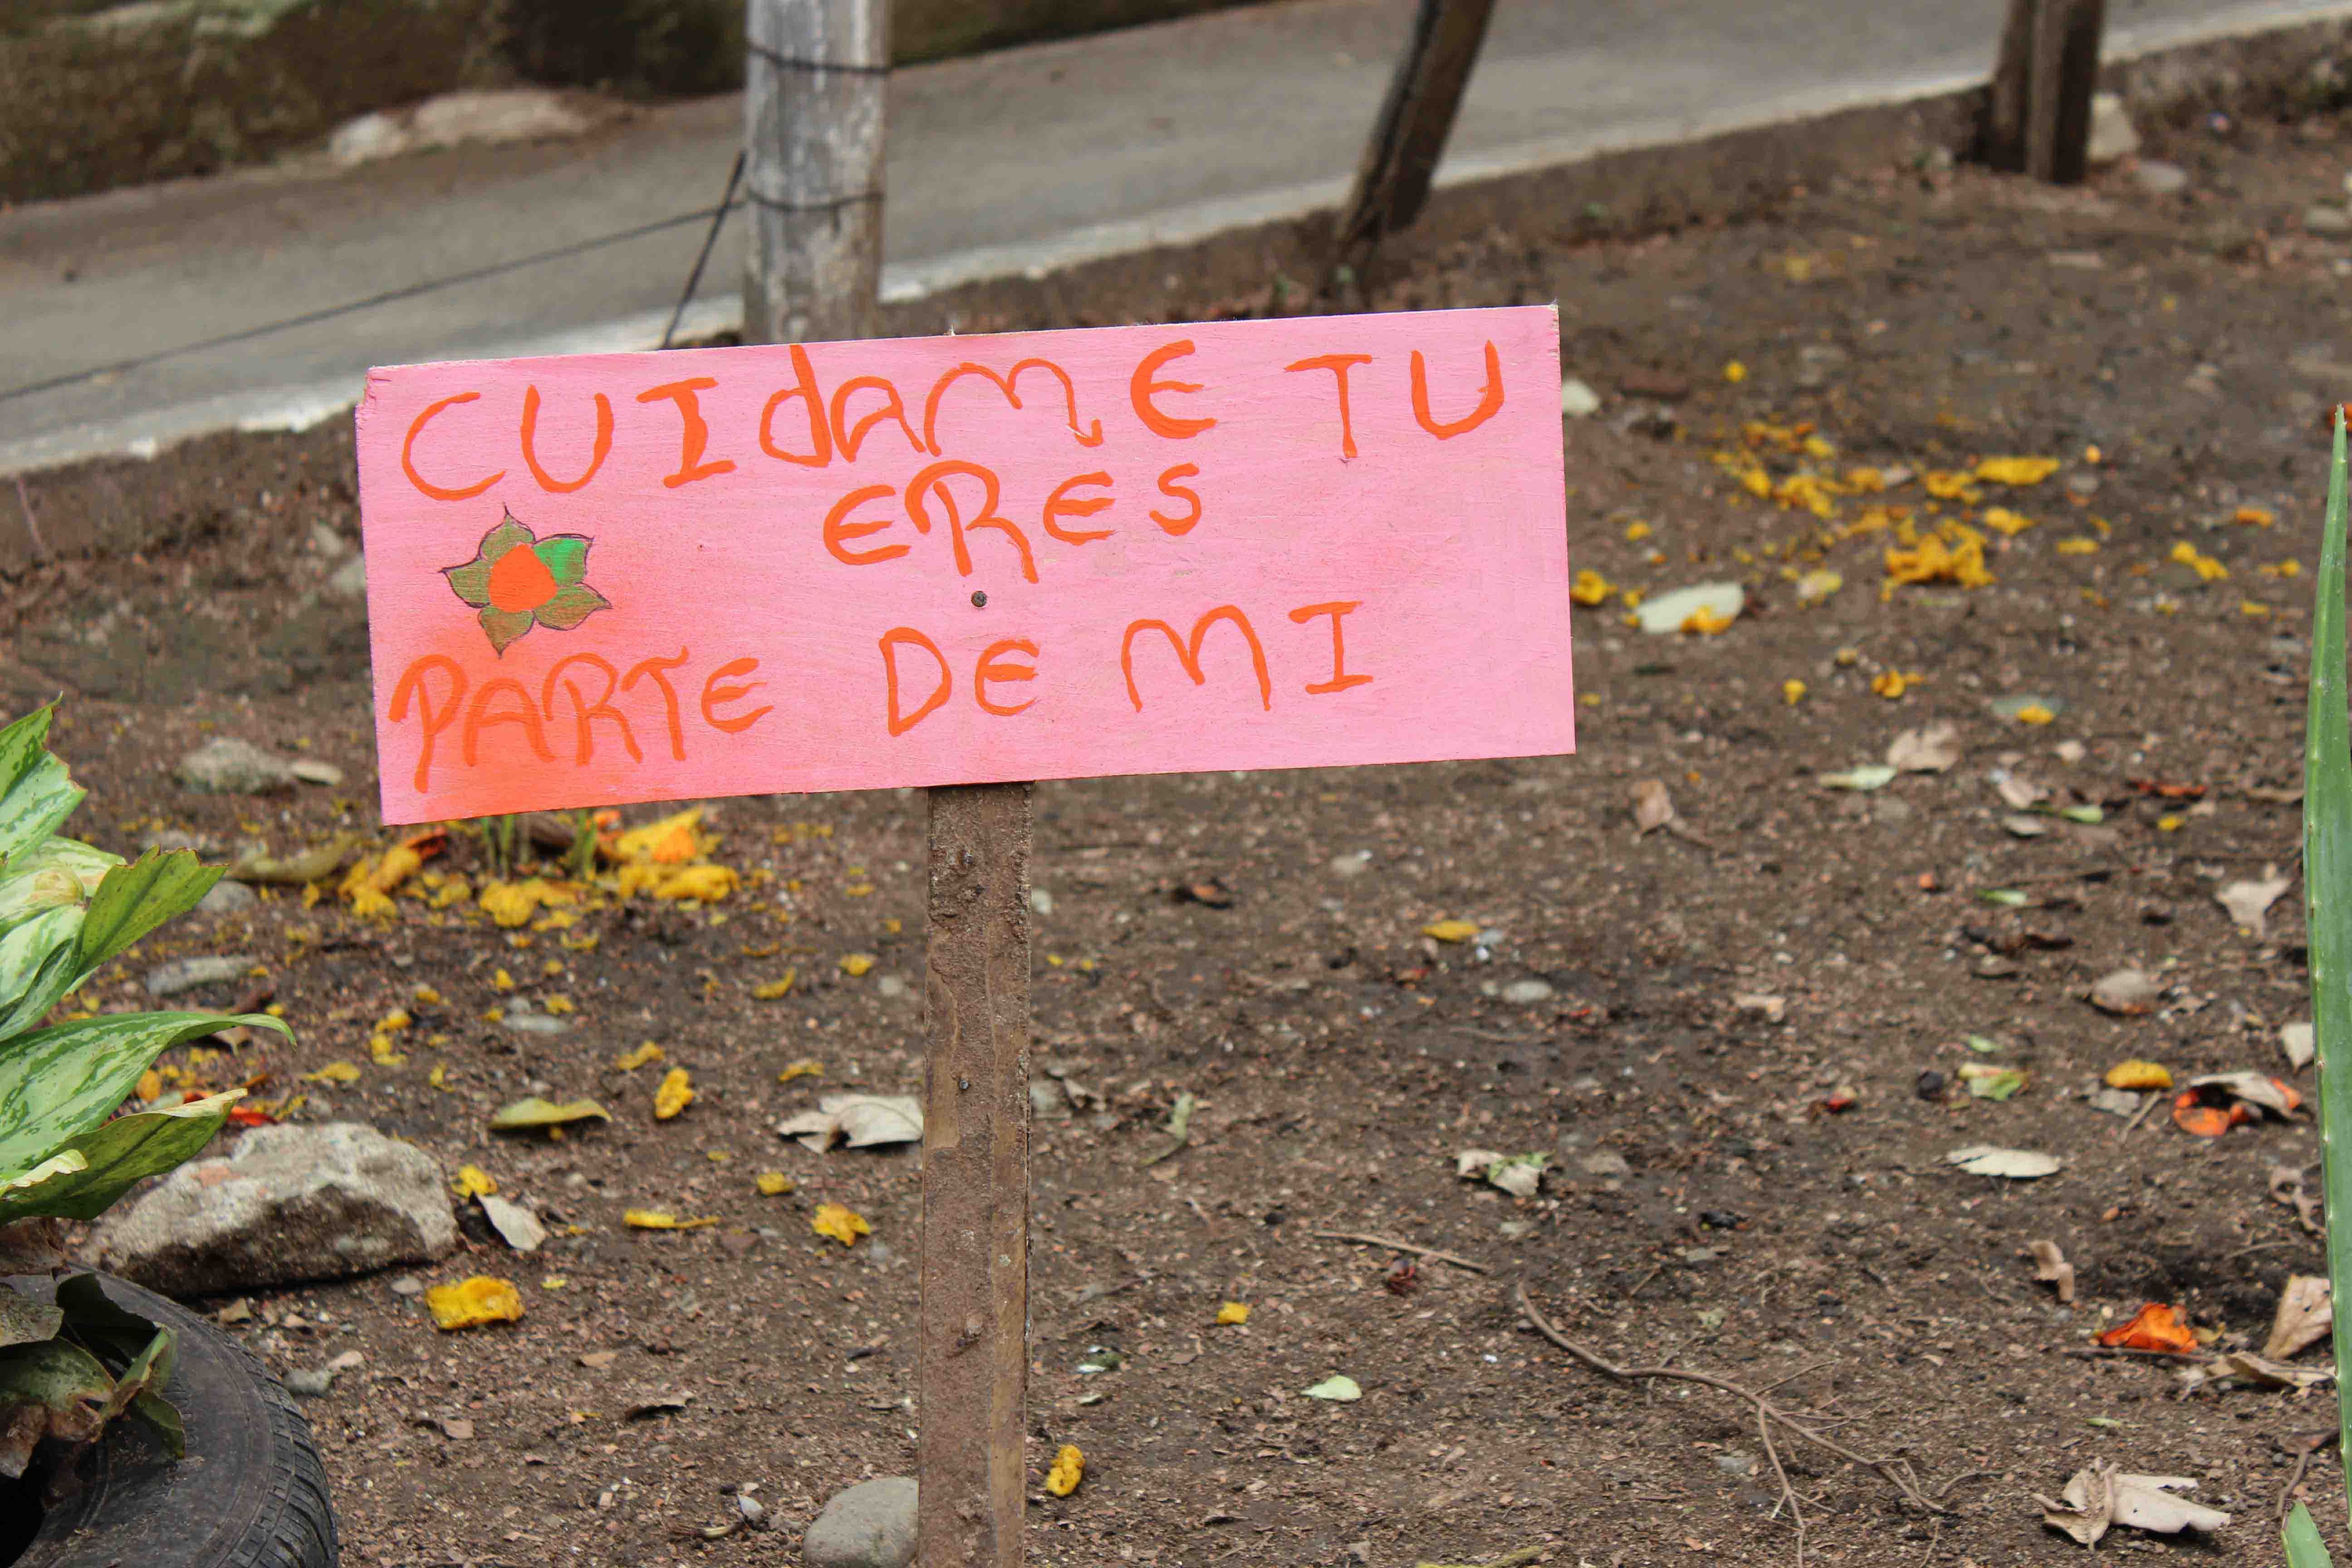 CUIdAME TU
ERES
PARTE DE MI